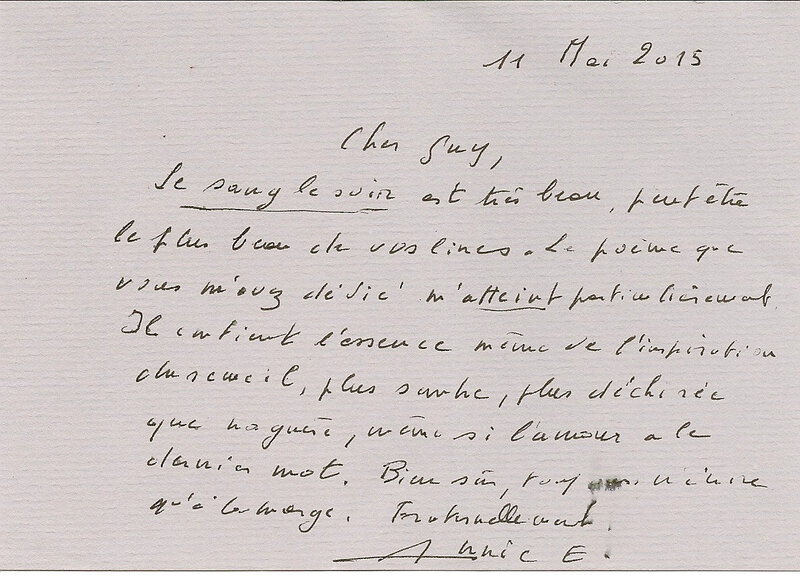 11 Mai 2015
Cher Guy,
Le sang le soir est très beau, peut être
le plus beau de vos livres. Le poème que
vous m'avez dédié m'atteint particulièrement.
Il contient l'essence même de l'inspiration
du recueil, plus sombre, plus déchirée
que naguère, même si l'amour a le
dernier mot. Bien sûr,
qu'à la marge. Fraternellement.
Annie E.